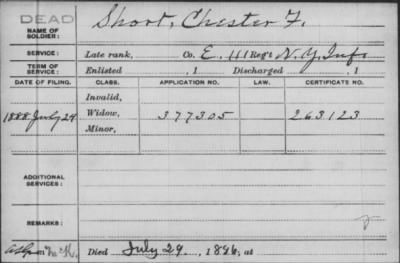 DEAD
NAME OF SOLDIER: Short, Chester F.
SERVICE: Late rank, Co. E, 111 Reg't N.Y. Inf.
TERM OF SERVICE: Enlisted , 1 Discharged , 1
DATE OF FILING. CLASS. APPLICATION NO. LAW. CERTIFICATE NO.
Invalid,
1888 July 24 Widow, 377305 263123
Minor,
ADDITIONAL SERVICES:
REMARKS:
Died July 29, 1886, at